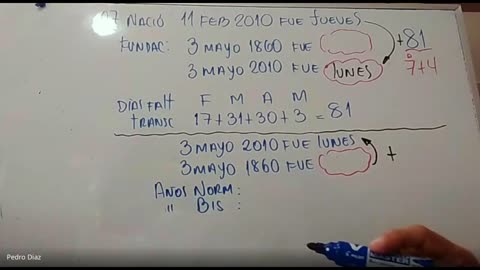 07 NACIÓ 11 FEB 2010 FUE JUEVES
FUNDAC: 3 MAYO 1860 FUE
+81
3 MAYO 2010 FUE LUNES
7+4
F M A M
DIAS FALT
TRANSC 17+31+30+3 = 81
3 MAYO 2010 FUE LUNES
3 MAYO 1860 FUE
+
AÑOS NORM:
" BIS :
Pedro Diaz